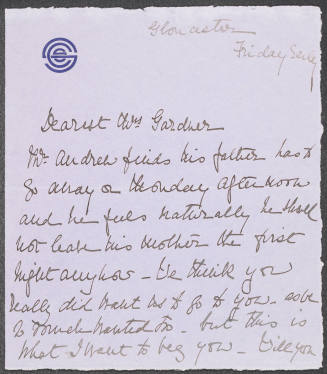 Gloucester
Friday Eve
Dearest Mrs Gardner
Mr. Andrew finds his father has to
go away on Monday afternoon
and he feels naturally he shall
not leave his mother the first
night anyhow - We think you
really did want us to go to you - as we
so much wanted to - but this is
what I want to beg you - Will you